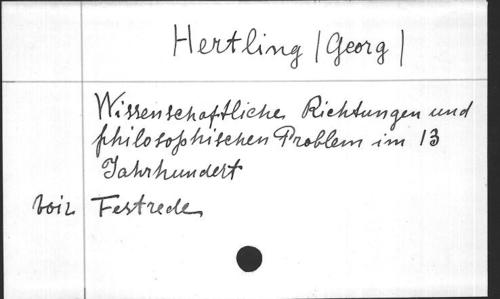 Hertling (Georg)
Wissenschaftliche Richtungen und
philosophischen Problem im 13
Jahrhundert
voir Festrede